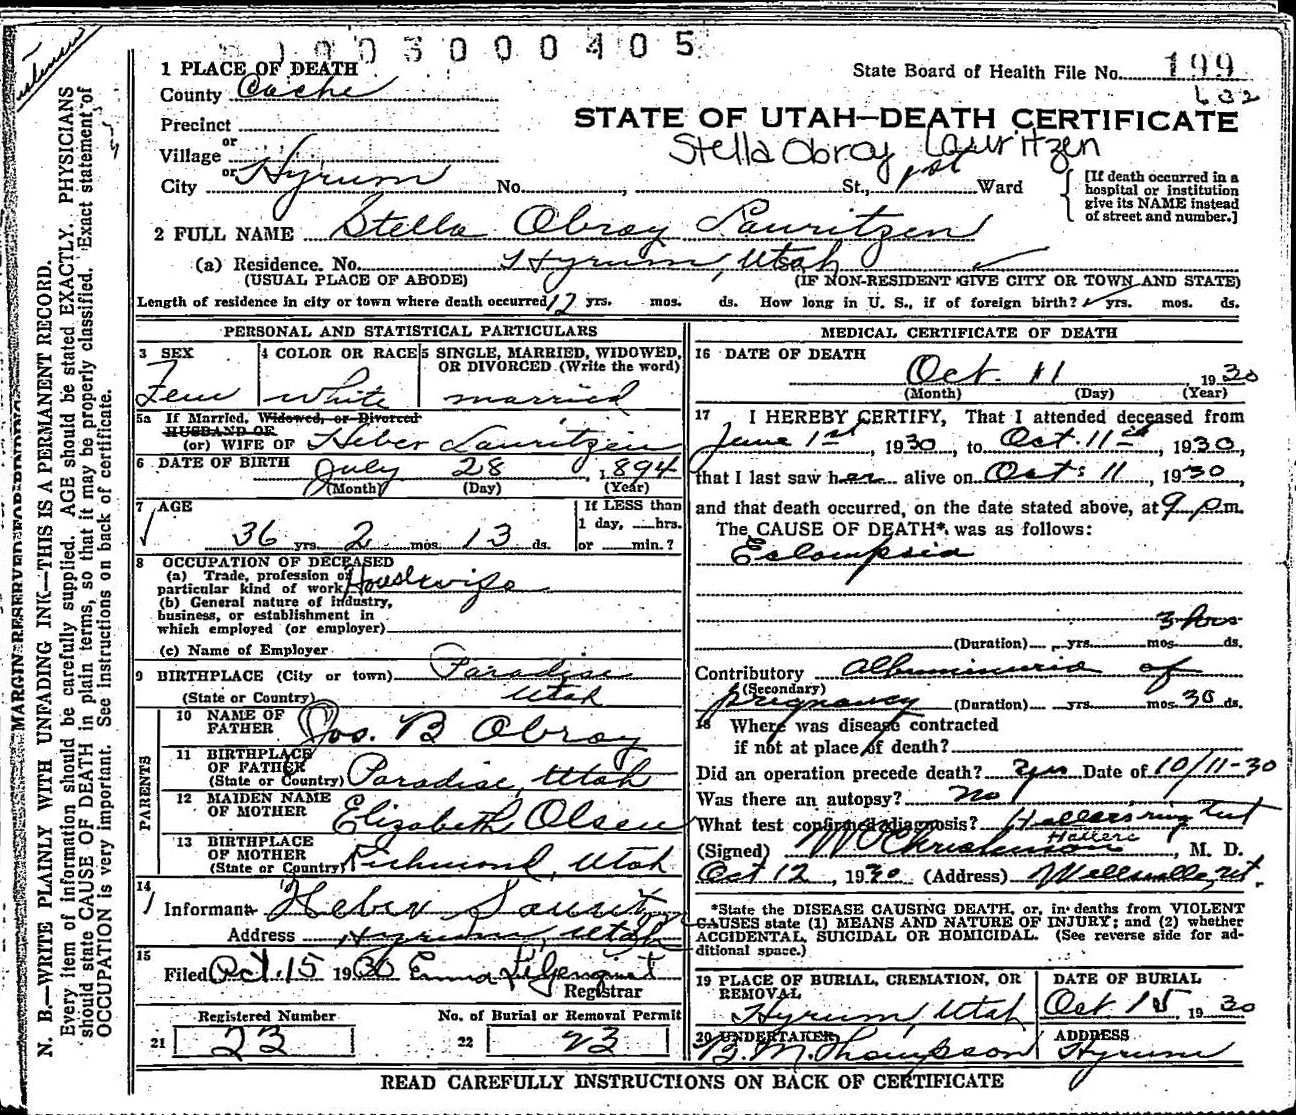 9 1 0 0 3 0 0 0 4 0 5
1 PLACE OF DEATH
County Cache
State Board of Health File No. 199
632
Precinct
or
Village
or
City Hyrum No. , St., 1st Ward
STATE OF UTAH—DEATH CERTIFICATE
Stella Obray Lauritzen
[If death occurred in a
hospital or institution
give its NAME instead
of street and number.]
2 FULL NAME Stella Obray Lauritzen
(a) Residence. No. Hyrum, Utah
(USUAL PLACE OF ABODE) (IF NON-RESIDENT GIVE CITY OR TOWN AND STATE)
Length of residence in city or town where death occurred 12 yrs. mos. ds. How long in U. S., if of foreign birth? yrs. mos. ds.
PERSONAL AND STATISTICAL PARTICULARS
3 SEX
Fem
4 COLOR OR RACE
white
5 SINGLE, MARRIED, WIDOWED,
OR DIVORCED (Write the word)
married
5a If Married, Widowed, or Divorced
HUSBAND OF
(or) WIFE OF Heber Lauritzen
6 DATE OF BIRTH July 28, 1894
(Month) (Day) (Year)
7 AGE
36 yrs. 2 mos. 13 ds.
If LESS than
1 day, hrs.
or min.?
8 OCCUPATION OF DECEASED
(a) Trade, profession or
particular kind of work Housewife
(b) General nature of industry,
business, or establishment in
which employed (or employer)
(c) Name of Employer
9 BIRTHPLACE (City or town) Paradise
(State or Country) Utah
PARENTS
10 NAME OF
FATHER Jos. B Obray
11 BIRTHPLACE
OF FATHER
(State or Country) Paradise, Utah
12 MAIDEN NAME
OF MOTHER Elizabeth Olsen
13 BIRTHPLACE
OF MOTHER
(State or Country) Richmond, Utah
14
Informant Heber Lauritzen
Address Hyrum, Utah
15
Filed Oct. 15 1930 Emma Liljenquist
Registrar
Registered Number No. of Burial or Removal Permit
21 23 22 23
MEDICAL CERTIFICATE OF DEATH
16 DATE OF DEATH
Oct. 11 1930
(Month) (Day) (Year)
17 I HEREBY CERTIFY, That I attended deceased from
June 1st, 1930, to Oct. 11th, 1930,
that I last saw her alive on Oct. 11, 1930,
and that death occurred, on the date stated above, at 9 p.m.
The CAUSE OF DEATH* was as follows:
Eclampsia
3 hrs
(Duration) yrs. mos. ds.
Contributory albuminuria of
(Secondary)
pregnancy (Duration) yrs. mos. 30 ds.
18 Where was disease contracted
if not at place of death?
Did an operation precede death? yes Date of 10/11-30
Was there an autopsy? no
What test confirmed diagnosis? Hellers ring test
Hellers
(Signed) Christenson, M. D.
Oct 12, 1930 (Address) Wellsville, Ut.
*State the DISEASE CAUSING DEATH, or, in deaths from VIOLENT
CAUSES state (1) MEANS AND NATURE OF INJURY; and (2) whether
ACCIDENTAL, SUICIDAL OR HOMICIDAL. (See reverse side for ad-
ditional space.)
19 PLACE OF BURIAL, CREMATION, OR
REMOVAL
Hyrum, Utah
DATE OF BURIAL
Oct. 15, 1930
20 UNDERTAKER
B. M. Thompson
ADDRESS
Hyrum
READ CAREFULLY INSTRUCTIONS ON BACK OF CERTIFICATE
MARGIN RESERVED FOR BINDING
N. B.—WRITE PLAINLY WITH UNFADING INK—THIS IS A PERMANENT RECORD.
Every item of information should be carefully supplied. AGE should be stated EXACTLY. PHYSICIANS
should state CAUSE OF DEATH in plain terms, so that it may be properly classified. Exact statement of
OCCUPATION is very important. See instructions on back of certificate.